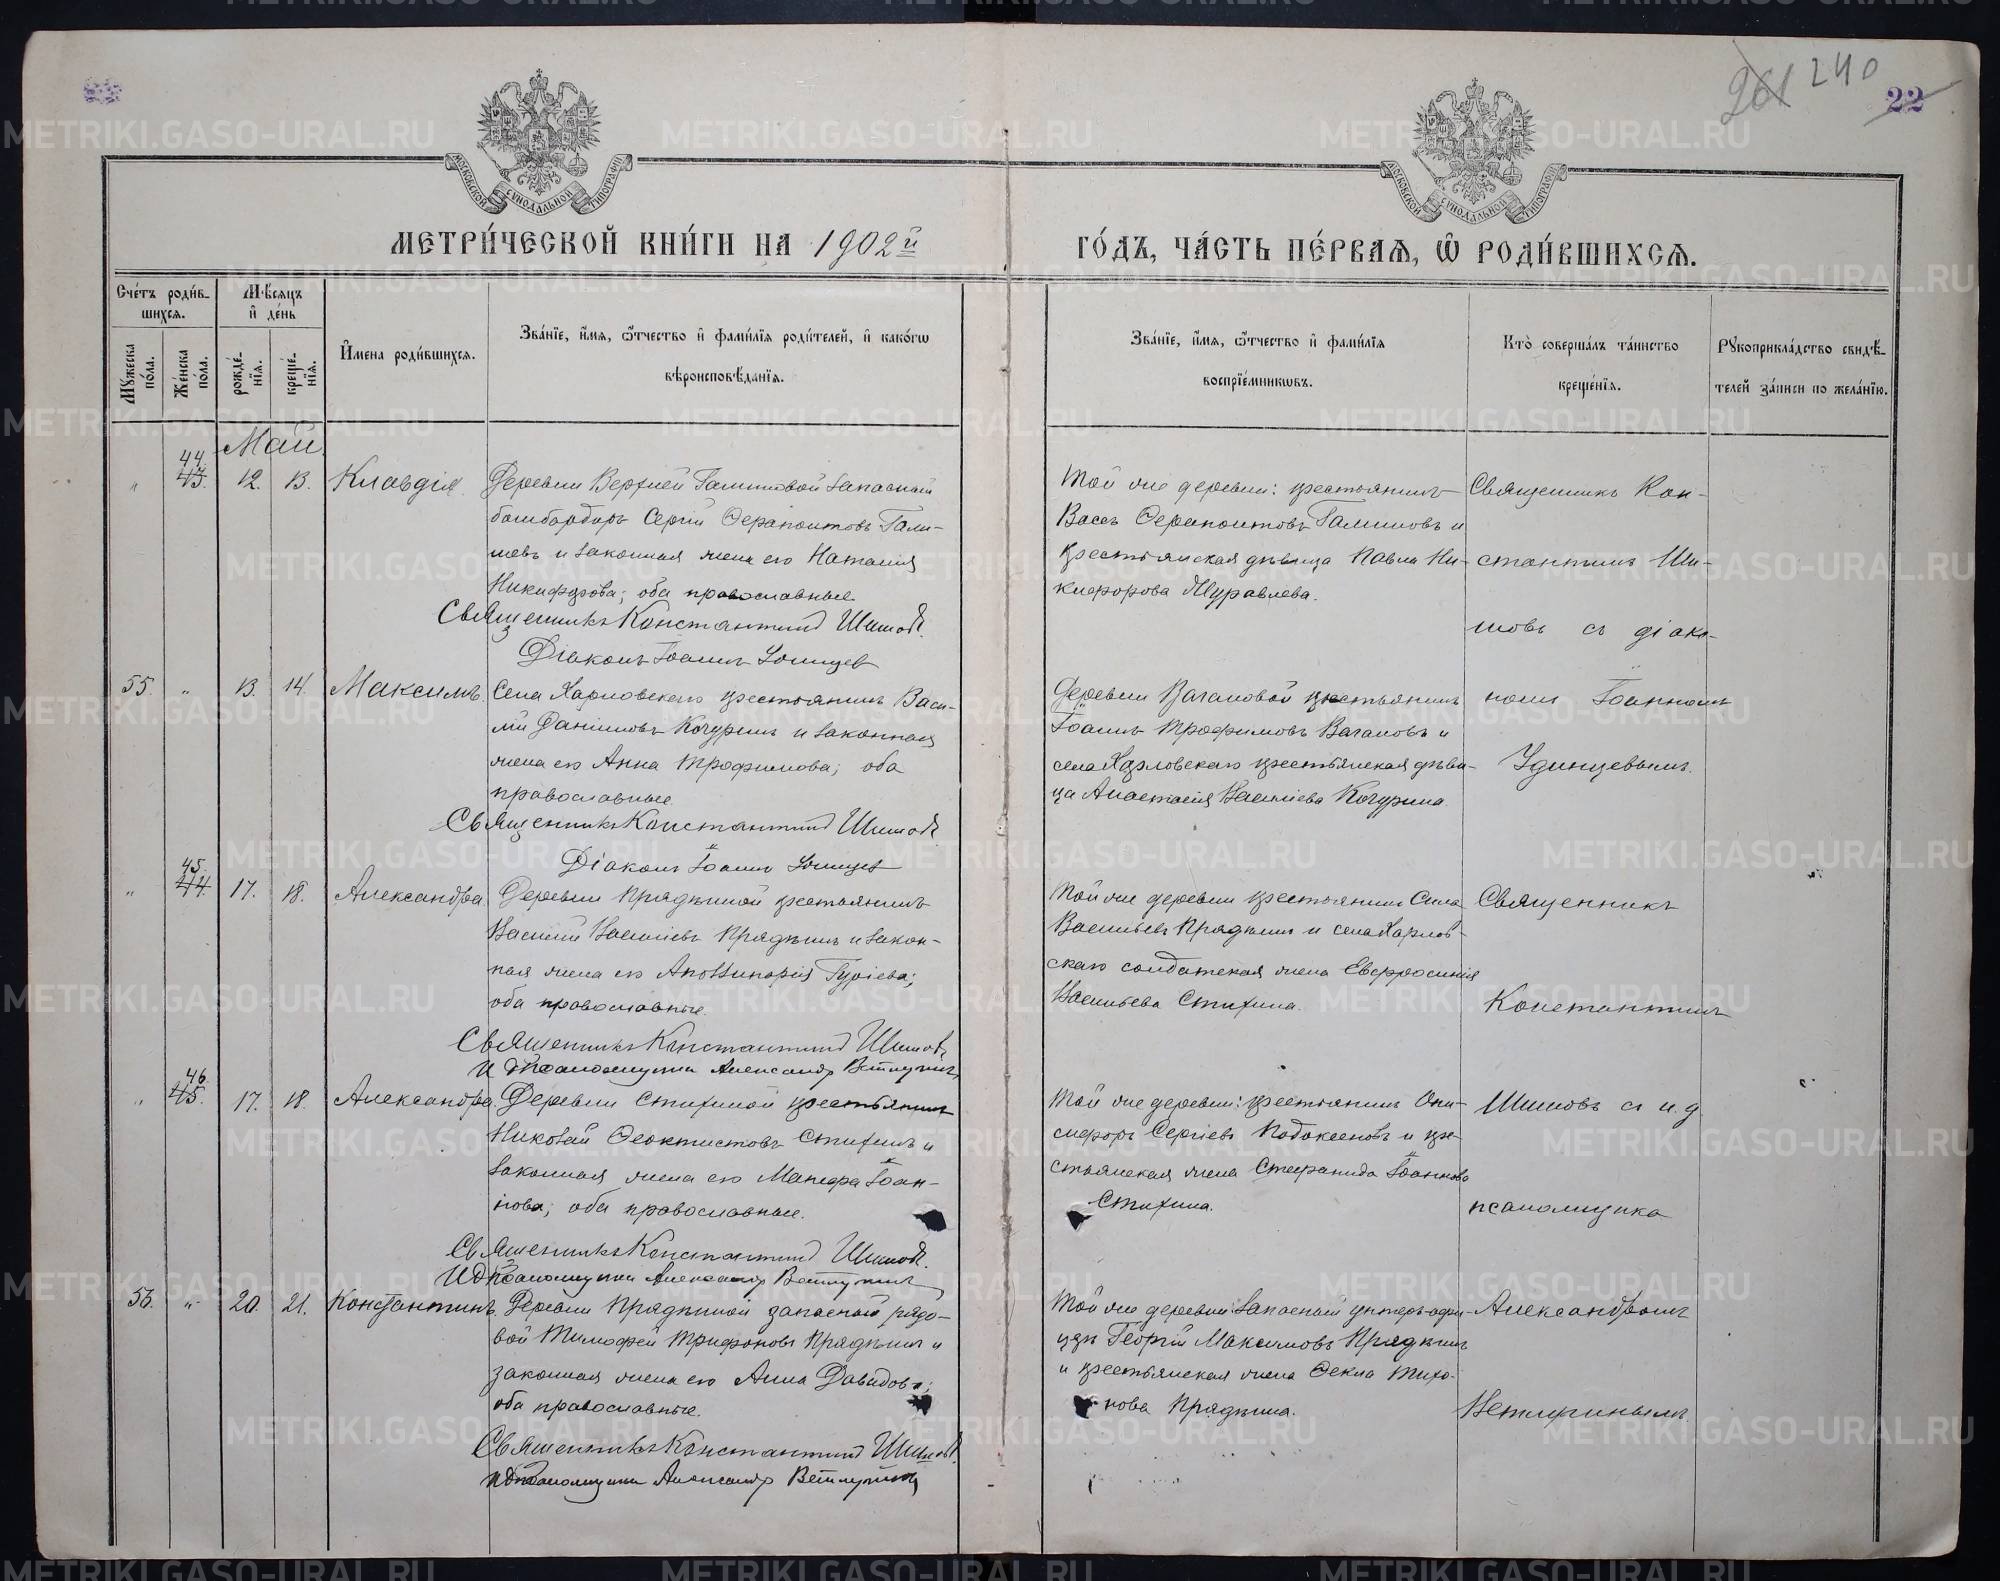 261 240
22
МОСКОВСКОЙ СѴНОДАЛЬНОЙ ТИПОГРАФІИ
МОСКОВСКОЙ СѴНОДАЛЬНОЙ ТИПОГРАФІИ
МЕТРИ́ЧЕСКОЙ КНИ́ГИ НА 1902й ГО́ДЪ, ЧА́СТЬ ПЕ́РВАѦ, Ѡ҆ РОДИ́ВШИХСѦ.
Сче́тъ роди́в-
шихсѧ.
Мѣ́сѧцъ
и҆ де́нь
Мꙋ́жеска
по́ла.
Же́нска
по́ла.
рожде́-
нїѧ.
креще́-
нїѧ.
И҆мена роди́вшихсѧ.
Зва́нїе, и҆́мѧ, ѻ҆́тчество и҆ фами́лїѧ роди́телей, и҆ како́гѡ
вѣроисповѣ́данїѧ.
Зва́нїе, и҆́мѧ, ѻ҆́тчество и҆ фами́лїѧ
воспрїе́мникѡвъ.
Кто̀ соверша́лъ та́инство
креще́нїѧ.
Рꙋкоприкла́дство свидѣ́-
телей за́писи по жела́нїю.
Май.
„ 44. 43. 12. 13. Клавдія.
Деревни Верхней Галишевой запасный
бомбардиръ Сергій Ѳерапонтовъ Гали-
шевъ и законная жена его Наталія
Никифорова; оба православные.
Священникъ Константинъ Шишовъ.
Діаконъ Іоаннъ Удинцев
Той же деревни: крестьянинъ
Вассъ Ѳерапонтовъ Галишевъ и
крестьянская дѣвица Павла Ни-
кифорова Журавлева.
Священникъ Кон-
стантинъ Ши-
шовъ съ діако-
55. „ 13. 14. Максимъ.
Села Харловскаго крестьянинъ Васи-
лій Даніиловъ Кочуринъ и законная
жена его Анна Трофимова; оба
православные.
Священникъ Константинъ Шишовъ
Діаконъ Іоаннъ Удинцев
Деревни Вагановой крестьянинъ
Іоаннъ Трофимовъ Вагановъ и
села Харловскаго крестьянская дѣви-
ца Анастасія Васильева Кочурина.
номъ Іоанномъ
Удинцевымъ.
„ 45. 44. 17. 18. Александра.
Деревни Прядѣиной крестьянинъ
Василій Васильевъ Прядѣинъ и закон-
ная жена его Аполлинарія Гуріева;
оба православные.
Священникъ Константинъ Шишовъ
И д псаломщика Александръ Ветлугинъ
Той же деревни крестьянинъ Сила
Васильевъ Прядѣинъ и села Харлов-
скаго солдатская жена Евфросинія
Васильева Стихина.
Священникъ
Константинъ
„ 46. 45. 17. 18. Александра.
Деревни Стихиной крестьянинъ
Николай Ѳеоктистовъ Стихинъ и
законная жена его Манефа Іоан-
нова; оба православные.
Священникъ Константинъ Шишовъ.
И д псаломщика Александръ Ветлугинъ
Той же деревни: крестьянинъ Они-
сифоръ Сергіевъ Подоксеновъ и кре-
стьянская жена Стефанида Іоаннова
Стихина.
Шишовъ съ и. д.
псаломщика
56. „ 20. 21. Константинъ.
Деревни Прядѣиной запасный рядо-
вой Тимофей Трифоновъ Прядѣинъ и
законная жена его Анна Давидова;
оба православные.
Священникъ Константинъ Шишовъ.
и д псаломщика Александръ Ветлугинъ
Той же деревни запасный унтеръ-офи-
церъ Георгій Максимовъ Прядѣинъ
и крестьянская жена Ѳекла Тихо-
нова Прядѣина.
Александромъ
Ветлугинымъ.